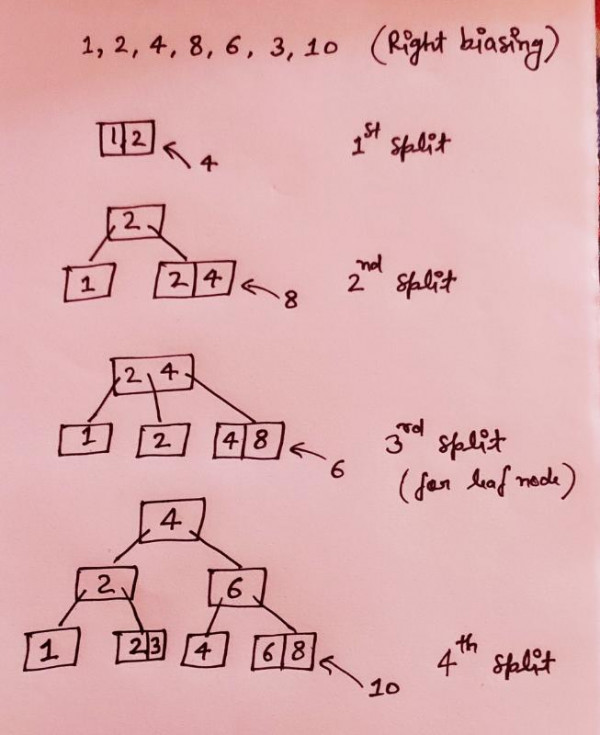 1, 2, 4, 8, 6, 3, 10 (Right biasing)
1 2
4
1st split
2
1
2 4
8
2nd split
2 4
1
2
4 8
6
3rd split
(for leaf node)
4
2
6
1
2 3
4
6 8
10
4th split